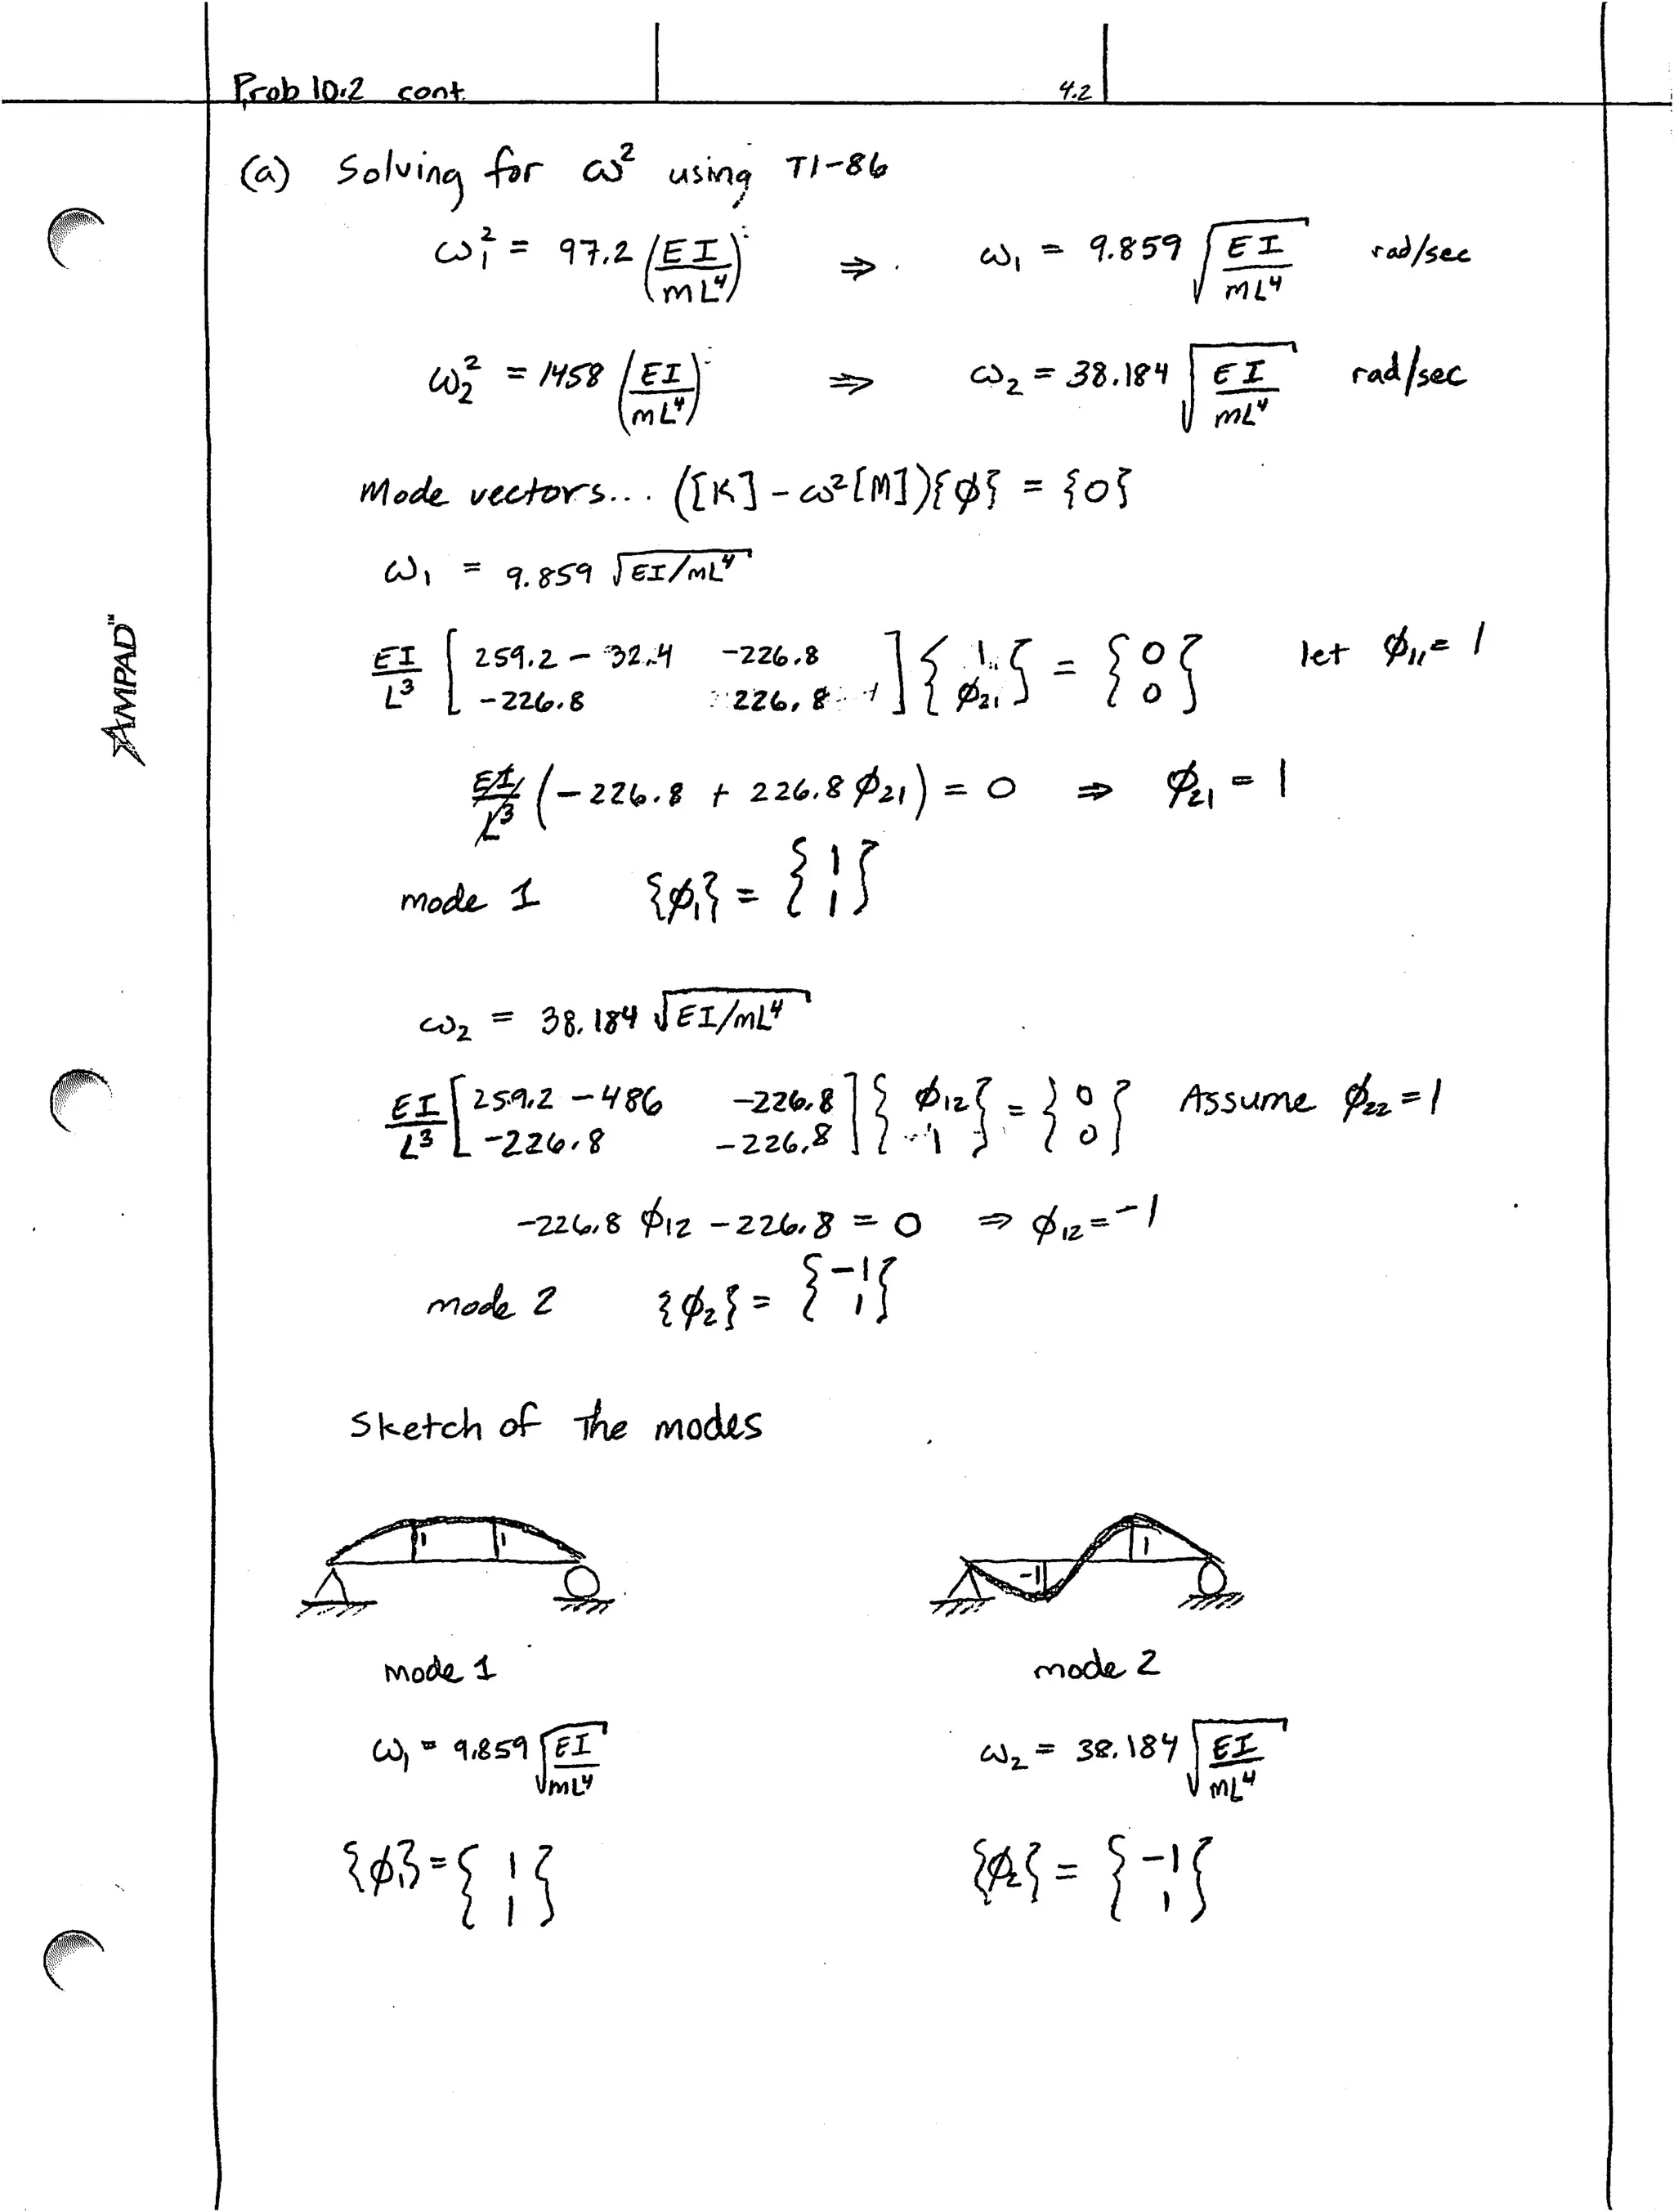 Prob 10.2 cont. 4.2
(a) Solving for ω² using TI-86
ω₁² = 97.2 (EI/mL⁴) ⇒ ω₁ = 9.859 √(EI/mL⁴) rad/sec
ω₂² = 1458 (EI/mL⁴) ⇒ ω₂ = 38.184 √(EI/mL⁴) rad/sec
Mode vectors... ([K] - ω²[M]){φ} = {0}
ω₁ = 9.859 √(EI/mL⁴)
EI/L³ [259.2 - 32.4 -226.8; -226.8 226.8] {1; φ₂₁} = {0; 0} let φ₁₁ = 1
EI/L³ (-226.8 + 226.8 φ₂₁) = 0 ⇒ φ₂₁ = 1
mode 1 {φ₁} = {1; 1}
ω₂ = 38.184 √(EI/mL⁴)
EI/L³ [259.2 - 486 -226.8; -226.8 -226.8] {φ₁₂; 1} = {0; 0} Assume φ₂₂ = 1
-226.8 φ₁₂ - 226.8 = 0 ⇒ φ₁₂ = -1
mode 2 {φ₂} = {-1; 1}
Sketch of the modes
1 1 -1 1
mode 1 mode 2
ω₁ = 9.859 √(EI/mL⁴) ω₂ = 38.184 √(EI/mL⁴)
{φ₁} = {1; 1} {φ₂} = {-1; 1}
AMPAD™